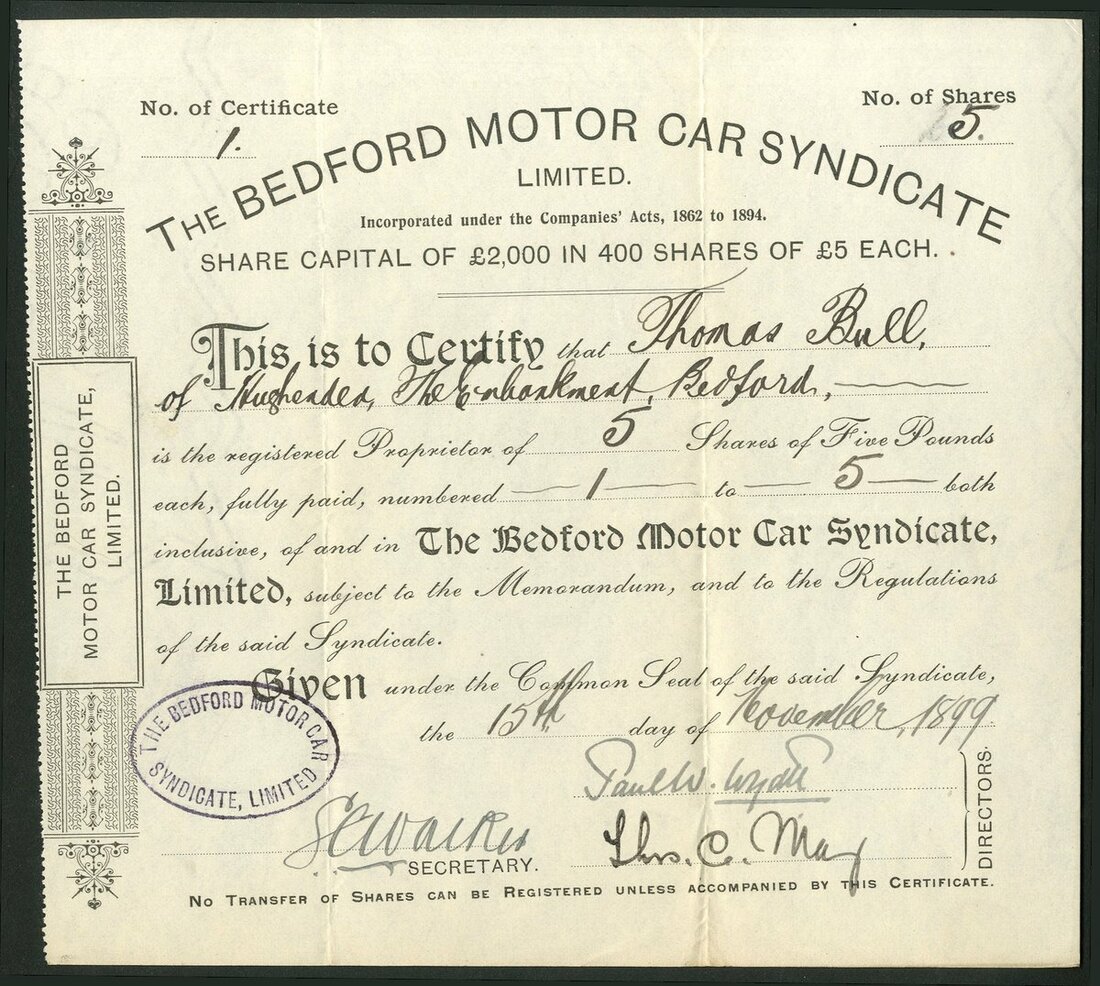 No. of Certificate
1.
No. of Shares
5.
THE BEDFORD MOTOR CAR SYNDICATE
LIMITED.
Incorporated under the Companies' Acts, 1862 to 1894.
SHARE CAPITAL OF £2,000 IN 400 SHARES OF £5 EACH.
This is to Certify that Thomas Bull,
of Hughenden, The Embankment, Bedford,
is the registered Proprietor of 5 Shares of Five Pounds
each, fully paid, numbered — 1 — to — 5 — both
inclusive, of and in The Bedford Motor Car Syndicate,
Limited, subject to the Memorandum, and to the Regulations
of the said Syndicate.
Given under the Common Seal of the said Syndicate,
the 15th day of November, 1899
Paul W. Wyatt
Thos. C. May
DIRECTORS.
Walker
SECRETARY.
No Transfer of Shares can be Registered unless accompanied by this Certificate.
THE BEDFORD
MOTOR CAR SYNDICATE,
LIMITED.
THE BEDFORD MOTOR CAR
SYNDICATE, LIMITED